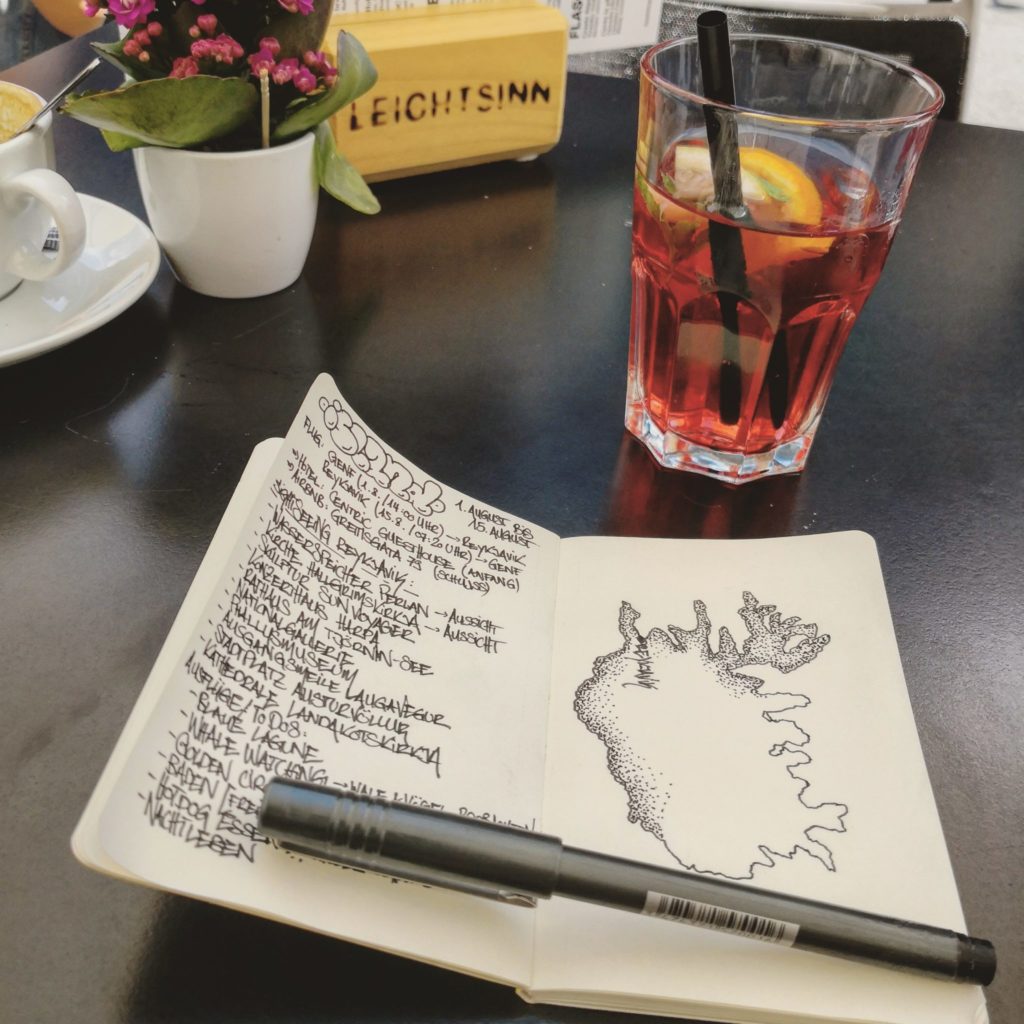 LEICHTSINN
FLUG:
1. AUGUST BIS
15. AUGUST
GENF (1.8. / 14:00 UHR) → REYKJAVIK
REYKJAVIK (15.8. / 07:20 UHR) → GENF
→ HOTEL: CENTRIC GUESTHOUSE (ANFANG)
→ AIRBNB: GRETTISGATA 79 (SCHLUSS)
SIGHTSEEING REYKJAVIK:
- WASSERSPEICHER PERLAN → AUSSICHT
- KIRCHE HALLGRIMSKIRKJA → AUSSICHT
- SKULPTUR SUN VOYAGER
- KONZERTHAUS HARPA
- RATHAUS AM TJÖRNIN-SEE
- NATIONALGALLERIE
- PHALLUSMUSEUM
- AUSGANGSMEILE LAUGAVEGUR
- STADTPLATZ AUSTURVÖLLUR
- KATHEDRALE LANDAKOTSKIRKJA
AUSFLÜGE/TO DOS:
- BLAUE LAGUNE
- WHALE WATCHING →
- GOLDEN
- BADEN
- HOTDOG ESSEN
- NACHTLEBEN